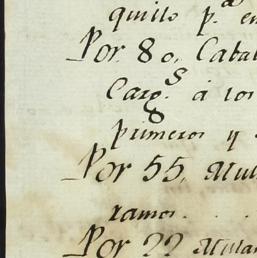 quito p.ª en
Por 80, Cabal
Carg.s á los
8
primeros y
Por 55, Mul
ramos . . .
Por 22 Mular